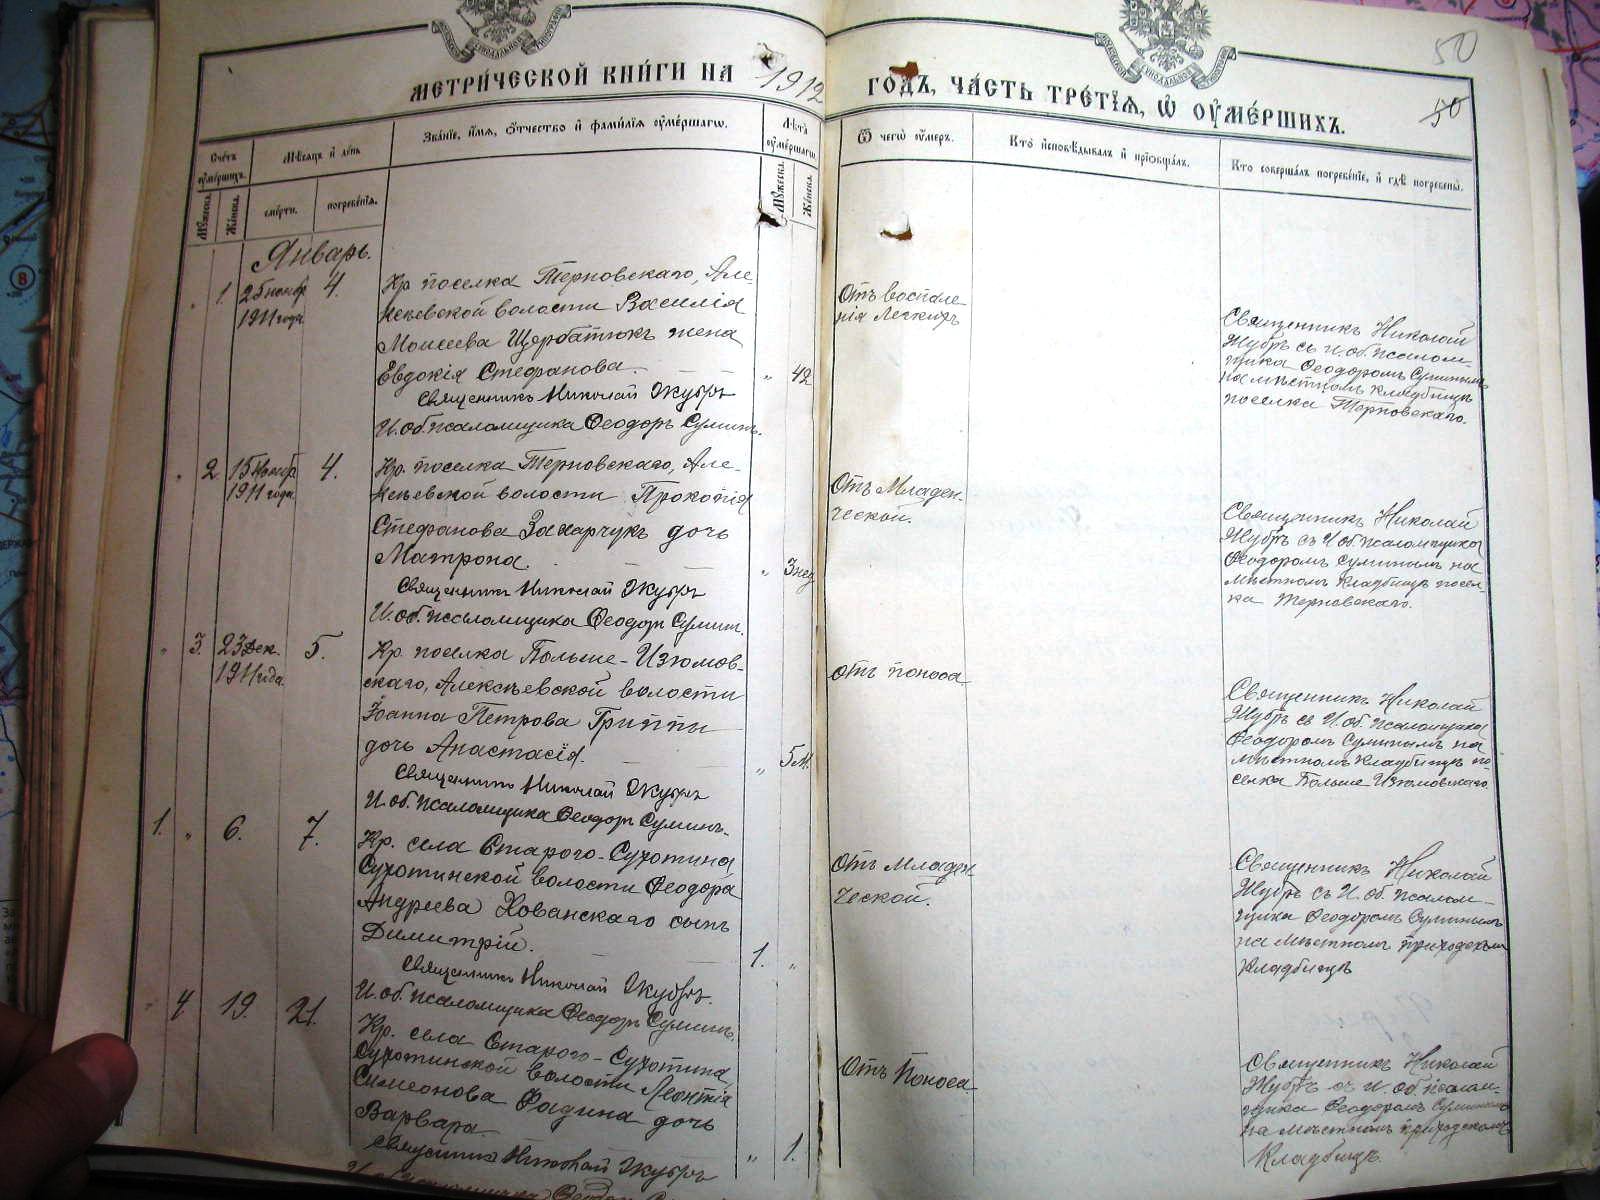 50
МЕТРИ́ЧЕСКОЙ КНИ́ГИ НА 1912 ГОДЪ, ЧА́СТЬ ТРЕ́ТІѦ, Ѡ҆ ОУ҆МЕ́РШИХЪ.
50
Сче́тъ оу҆ме́ршихъ.
Мѣ́сѧцъ и҆ де́нь
Зва́нїе, и҆́мѧ, ѻ҆́тчество и҆ фамі́лїѧ оу҆ме́ршагѡ.
Лѣ́та оу҆ме́ршагѡ.
Ѿ чегѡ̀ оу҆́меръ.
Кто̀ и҆сповѣ́дывалъ и҆ прїѻбща́лъ.
Кто̀ соверша́лъ погребе́нїе, и҆ гдѣ̀ погребены̀.
Мꙋ́жеска.
Же́нска.
сме́рти.
погребе́нїѧ.
Мꙋ́жеска.
Же́нска.
Январь.
" 1. 25 ноябр 1911 года 4.
Кр. поселка Терновскаго, Але-
ксѣевской волости Василія
Моисеева Щербатюкъ жена
Евдокія Стефанова.
" 42
Священникъ Николай Жубръ
И.об.псаломщика Ѳеодоръ Суминъ.
Отъ воспале-
нія Легкихъ
Священникъ Николай
Жубръ съ И.об.псалом-
щика Ѳеодоромъ Суминымъ
на мѣстномъ кладбищѣ
поселка Терновскаго.
" 2. 15 Ноябр 1911 года 4.
Кр. поселка Терновскаго, Але-
ксѣевской волости Прокопія
Стефанова Захарчукъ дочь
Матрона.
" 3 нед
Священникъ Николай Жубръ
И.об.псаломщика Ѳеодоръ Суминъ.
Отъ Младен-
ческой.
Священникъ Николай
Жубръ съ И.об.псаломщика
Ѳеодоромъ Суминымъ на
мѣстномъ кладбищѣ посел-
ка Терновскаго.
" 3. 23 Дек. 1911 года 5.
Кр. поселка Больше-Изюмов-
скаго, Алексѣевской волости
Іоанна Петрова Гриппы
дочь Анастасія.
" 5 м.
Священникъ Николай Жубръ
И.об.псаломщика Ѳеодоръ Суминъ.
Отъ поноса.
Священникъ Николай
Жубръ съ И.об.псаломщика
Ѳеодоромъ Суминымъ на
мѣстномъ кладбищѣ по-
селка Больше Изюмовскаго
1. " 6. 7.
Кр. села Старого-Суротина
Суротинской волости Ѳеодора
Андреева Хованскаго сынъ
Димитрій.
1. "
Священникъ Николай Жубръ.
И.об.псаломщика Ѳеодоръ Суминъ.
Отъ Младен
ческой.
Священникъ Николай
Жубръ съ И.об.псалом-
щика Ѳеодоромъ Суминымъ
на мѣстномъ приходскомъ
кладбищѣ
" 4 19. 21.
Кр. села Старого-Суротина,
Суротинской волости Леонтія
Симеонова Фадина дочь
Варвара.
" 1.
Священникъ Николай Жубръ
Отъ Поноса.
Священникъ Николай
Жубръ съ И.об.псалом-
щика Ѳеодоромъ Суминымъ
на мѣстномъ приходскомъ
кладбищѣ.